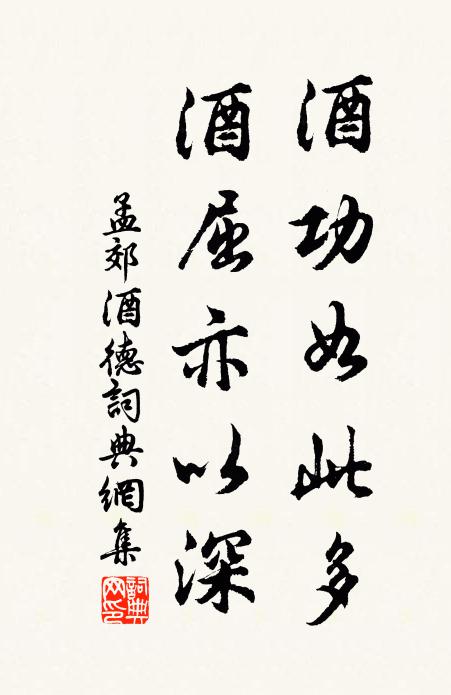 酒功如此多
酒屈亦以深
孟郊酒德詞典網集
詞典網印